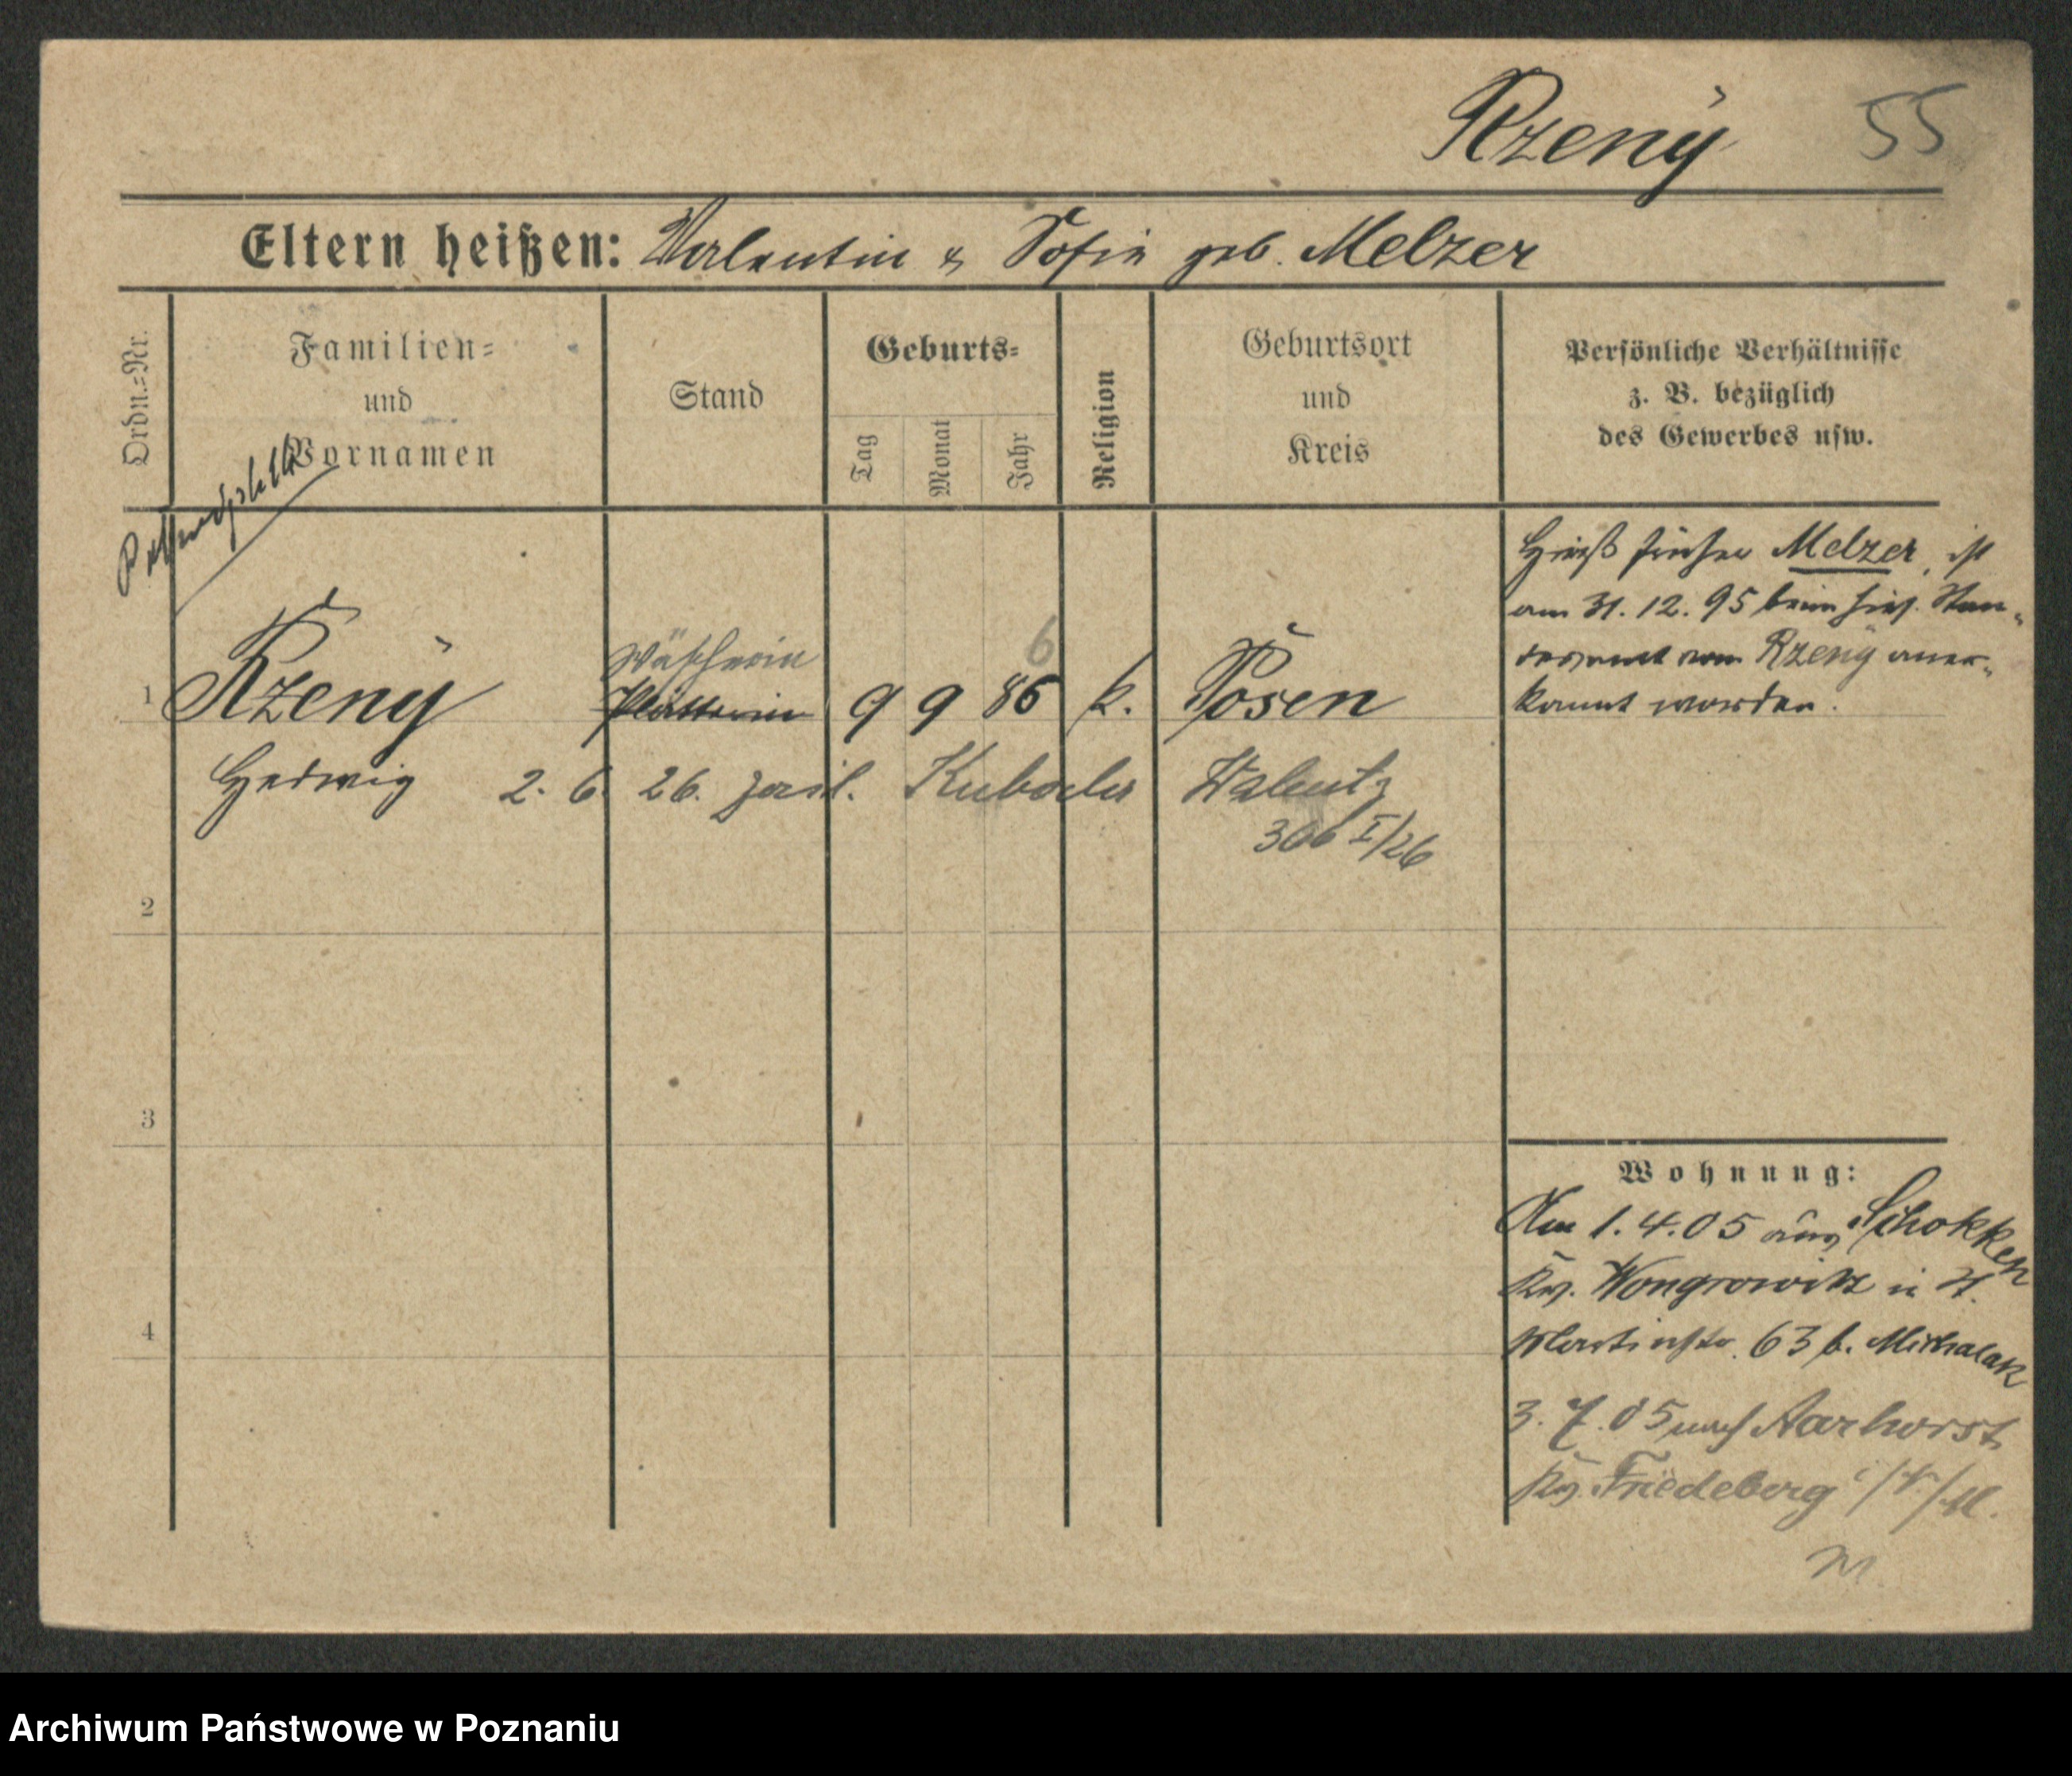 Rzeny 55
Eltern heißen: Valentin & Sofie geb. Melzer
Ordn.=Nr.
Familien=
und
Vornamen
Stand
Geburts=
Tag
Monat
Jahr
Religion
Geburtsort
und
Kreis
Persönliche Verhältnisse
z. B. bezüglich
des Gewerbes usw.
Hieß früher Melzer, ist
am 31. 12. 95 beim hies. Stan-
desamt von Rzeny aner-
kannt worden.
6
Wäscherin
1 Rzeny Plätterin 9 9 86 k. Posen
Hedwig 2. 6. 26. zaśl. Walenty
306 I/26
2
3
4
Wohnung:
Am 1. 4. 05 aus Schokken
Krs. Wongrowitz in St.
Martinstr. 63 b. Michalak
3. 7. 05 nach Aarhorst
Krs. Friedeberg i/N/M.
Archiwum Państwowe w Poznaniu